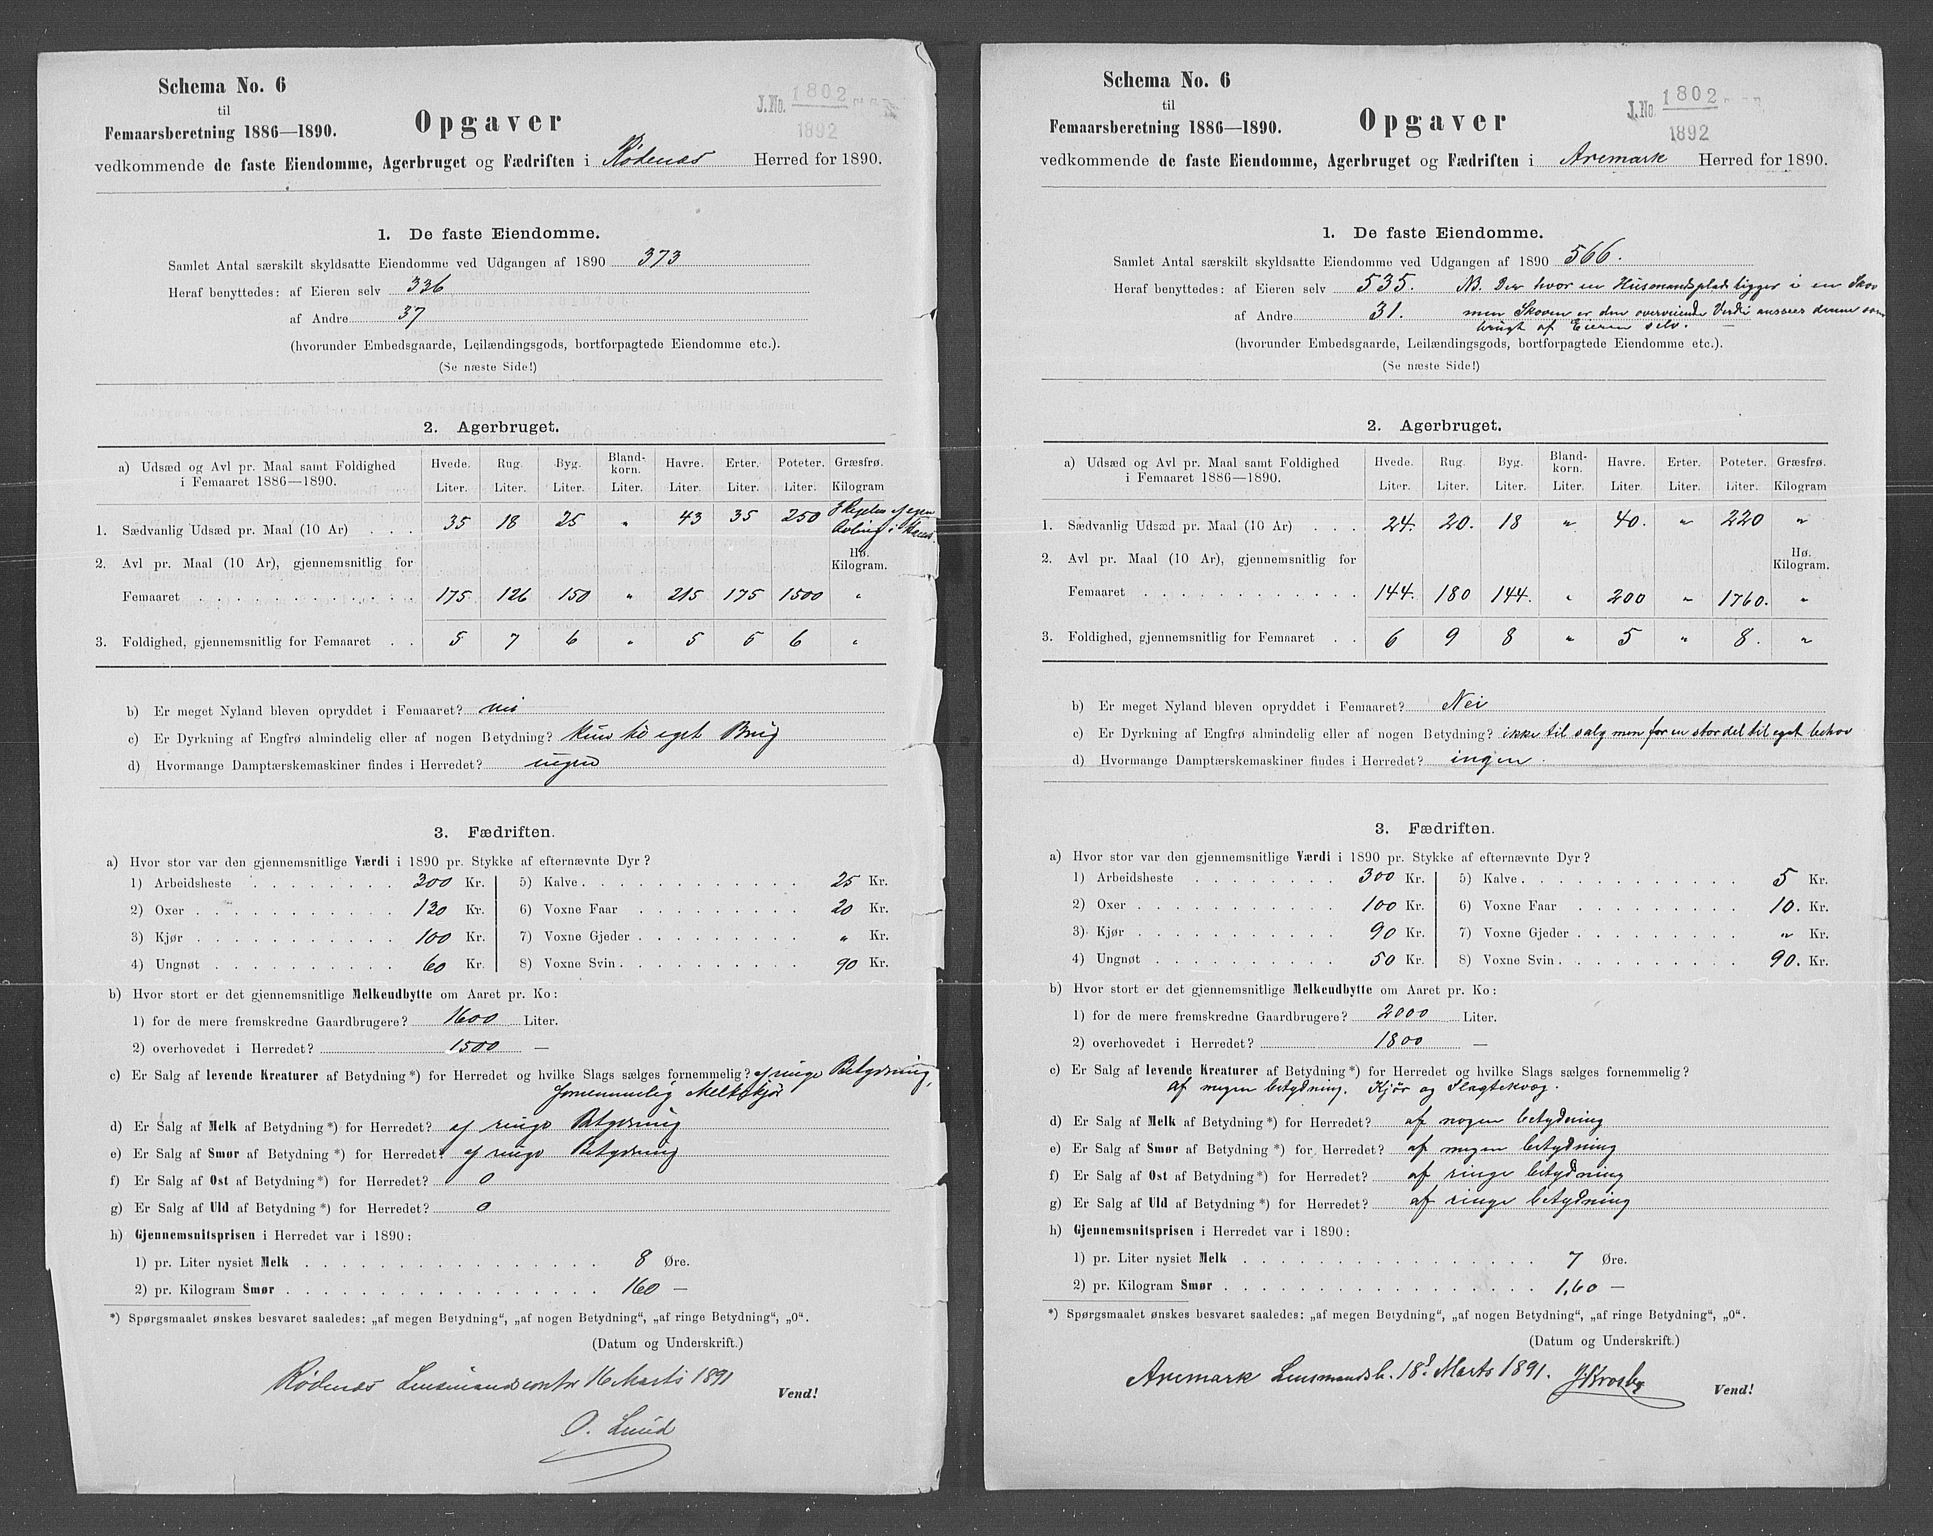 Schema No. 6
til
Femaarsberetning 1886—1890.
Opgaver
J.No. 1802
1892
vedkommende de faste Eiendomme, Agerbruget og Fædriften i Rødenæs Herred for 1890.
1. De faste Eiendomme.
Samlet Antal særskilt skyldsatte Eiendomme ved Udgangen af 1890 373
Heraf benyttedes: af Eieren selv 336
af Andre 37
(hvorunder Embedsgaarde, Leilændingsgods, bortforpagtede Eiendomme etc.).
(Se næste Side!)
2. Agerbruget.
a) Udsæd og Avl pr. Maal samt Foldighed i Femaaret 1886—1890. Hvede. Liter. Rug. Liter. Byg. Liter. Bland-korn. Liter. Havre. Liter. Erter. Liter. Poteter. Liter. Græsfrø. Kilogram
1. Sædvanlig Udsæd pr. Maal (10 Ar) 35 18 25 „ 43 35 250 af egen Avling i
Hø. Kilogram.
2. Avl pr. Maal (10 Ar), gjennemsnitlig for
Femaaret 175 126 150 „ 215 175 1500 „
3. Foldighed, gjennemsnitlig for Femaaret 5 7 6 „ 5 5 6 „
b) Er meget Nyland bleven opryddet i Femaaret? nei
c) Er Dyrkning af Engfrø almindelig eller af nogen Betydning? kun til eget Brug
d) Hvormange Damptærskemaskiner findes i Herredet? ingen
3. Fædriften.
a) Hvor stor var den gjennemsnitlige Værdi i 1890 pr. Stykke af efternævnte Dyr?
1) Arbeidsheste 300 Kr. 5) Kalve 25 Kr.
2) Oxer 130 Kr. 6) Voxne Faar 20 Kr.
3) Kjør 100 Kr. 7) Voxne Gjeder „ Kr.
4) Ungnøt 60 Kr. 8) Voxne Svin 90 Kr.
b) Hvor stort er det gjennemsnitlige Melkeudbytte om Aaret pr. Ko:
1) for de mere fremskredne Gaardbrugere? 1600 Liter.
2) overhovedet i Herredet? 1500 —
c) Er Salg af levende Kreaturer af Betydning*) for Herredet og hvilke Slags sælges fornemmelig? af ringe Betydning,
fornemmelig Melkekjør
d) Er Salg af Melk af Betydning*) for Herredet? af ringe Betydning
e) Er Salg af Smør af Betydning*) for Herredet? af ringe Betydning
f) Er Salg af Ost af Betydning*) for Herredet? 0
g) Er Salg af Uld af Betydning*) for Herredet? 0
h) Gjennemsnitsprisen i Herredet var i 1890:
1) pr. Liter nysiet Melk 8 Øre.
2) pr. Kilogram Smør 160 —
*) Spørgsmaalet ønskes besvaret saaledes: „af megen Betydning“, „af nogen Betydning“, „af ringe Betydning“, „0“.
(Datum og Underskrift.)
Rødenæs Lensmandscontor 16 Marts 1891
Vend!
O. Lund
Schema No. 6
til
Femaarsberetning 1886—1890.
Opgaver
J.No. 1802
1892
vedkommende de faste Eiendomme, Agerbruget og Fædriften i Aremark Herred for 1890.
1. De faste Eiendomme.
Samlet Antal særskilt skyldsatte Eiendomme ved Udgangen af 1890 566.
Heraf benyttedes: af Eieren selv 535. NB. Der hvor en Husmandsplads ligger i en Skov
af Andre 31. men Skoven er den overveiende Værdi ansees denne som
brugt af Eieren selv. —
(hvorunder Embedsgaarde, Leilændingsgods, bortforpagtede Eiendomme etc.).
(Se næste Side!)
2. Agerbruget.
a) Udsæd og Avl pr. Maal samt Foldighed i Femaaret 1886—1890. Hvede. Liter. Rug. Liter. Byg. Liter. Bland-korn. Liter. Havre. Liter. Erter. Liter. Poteter. Liter. Græsfrø. Kilogram
1. Sædvanlig Udsæd pr. Maal (10 Ar) 24. 20. 18 „ 40. „ 220 „
Hø. Kilogram.
2. Avl pr. Maal (10 Ar), gjennemsnitlig for
Femaaret 144. 180 144. „ 200 „ 1760. „
3. Foldighed, gjennemsnitlig for Femaaret 6 9 8 „ 5 „ 8. „
b) Er meget Nyland bleven opryddet i Femaaret? Nei
c) Er Dyrkning af Engfrø almindelig eller af nogen Betydning? ikke til salg men for en stor del til eget behov
d) Hvormange Damptærskemaskiner findes i Herredet? ingen.
3. Fædriften.
a) Hvor stor var den gjennemsnitlige Værdi i 1890 pr. Stykke af efternævnte Dyr?
1) Arbeidsheste 300 Kr. 5) Kalve 5 Kr.
2) Oxer 100 Kr. 6) Voxne Faar 10. Kr.
3) Kjør 90 Kr. 7) Voxne Gjeder „ Kr.
4) Ungnøt 50 Kr. 8) Voxne Svin 90. Kr.
b) Hvor stort er det gjennemsnitlige Melkeudbytte om Aaret pr. Ko:
1) for de mere fremskredne Gaardbrugere? 2000 Liter.
2) overhovedet i Herredet? 1800 —
c) Er Salg af levende Kreaturer af Betydning*) for Herredet og hvilke Slags sælges fornemmelig?
af megen betydning. Kjør og Slagtekvæg.
d) Er Salg af Melk af Betydning*) for Herredet? af nogen betydning
e) Er Salg af Smør af Betydning*) for Herredet? af megen betydning
f) Er Salg af Ost af Betydning*) for Herredet? af ringe betydning
g) Er Salg af Uld af Betydning*) for Herredet? af ringe betydning
h) Gjennemsnitsprisen i Herredet var i 1890:
1) pr. Liter nysiet Melk 7 Øre.
2) pr. Kilogram Smør 1,60 —
*) Spørgsmaalet ønskes besvaret saaledes: „af megen Betydning“, „af nogen Betydning“, „af ringe Betydning“, „0“.
(Datum og Underskrift.)
Aremark Lensmandsb. 18d Marts 1891. Krosby
Vend!